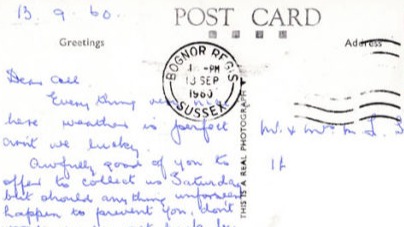 13.9.60
POST CARD
Greetings
Address
BOGNOR REGIS
-PM
13 SEP
1960
SUSSEX
Dear
Every thing very nice
here weather is perfect
arent we lucky.
Awfully good of you to
offer to collect us Saturday
but should anything unforseen
happen to prevent you, dont
Mr. & Mrs
THIS IS A REAL PHOTOGRAPH